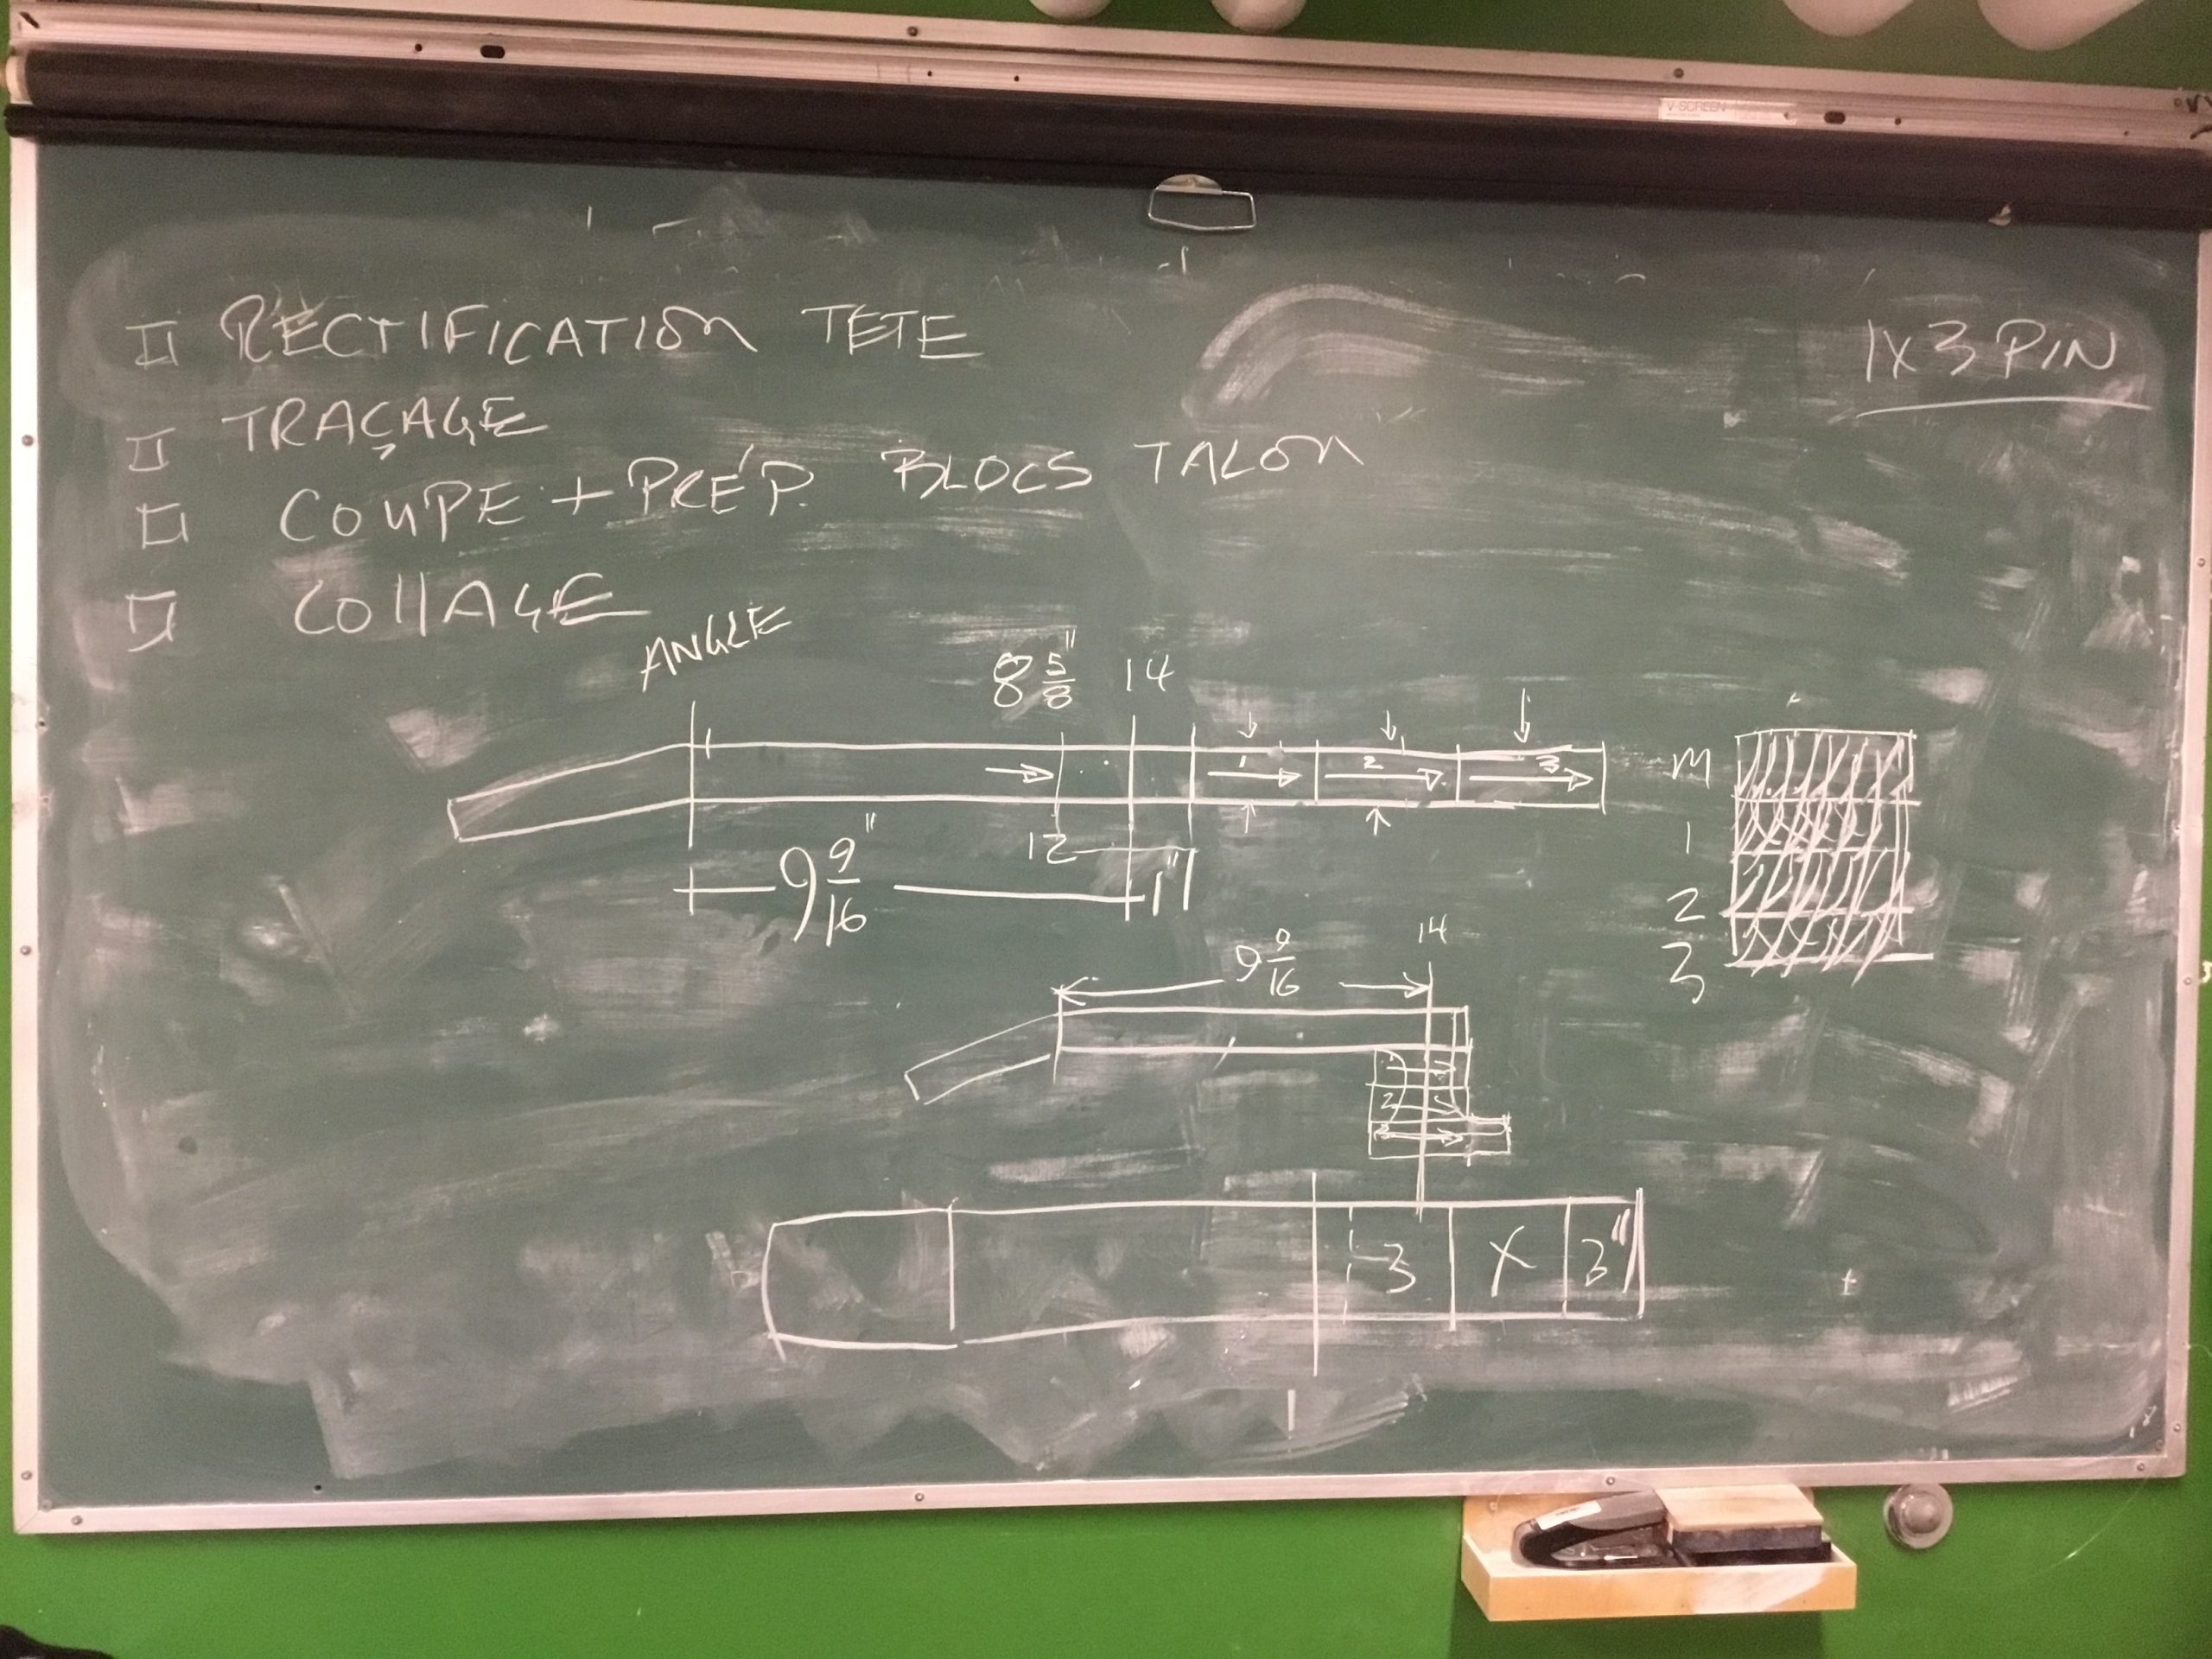 V-SCREEN
RECTIFICATION TETE
1X3 PIN
TRAÇAGE
COUPE + PRÉP. BLOCS TALON
COllAGE
ANGLE
8 5/8" 14
1 2 3
M
12
9 9/16" 1"
1
2
3
9 9/16 14
1
2
3
3 X 3"